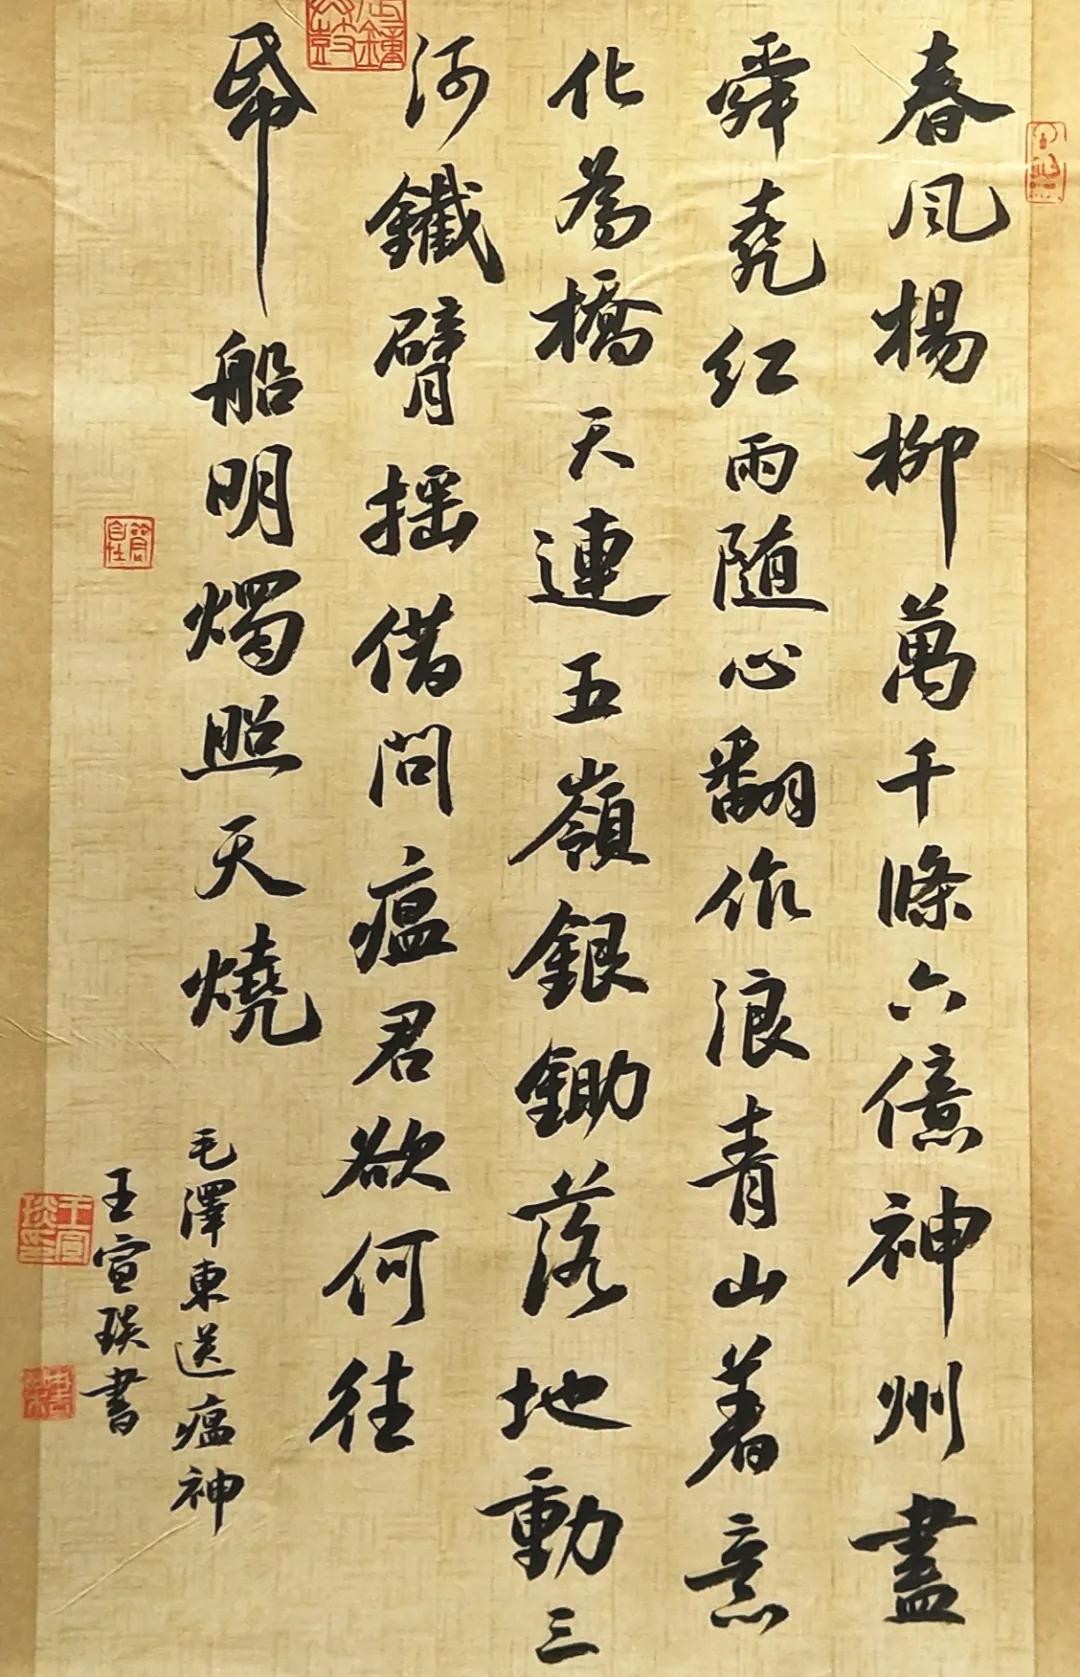 春風楊柳萬千條六億神州盡
舜堯紅雨随心翻作浪青山着意
化為橋天連五嶺銀鋤落地動三
河鐵臂摇借問瘟君欲何往
帋船明燭照天燒
毛澤東送瘟神
王宣琰書